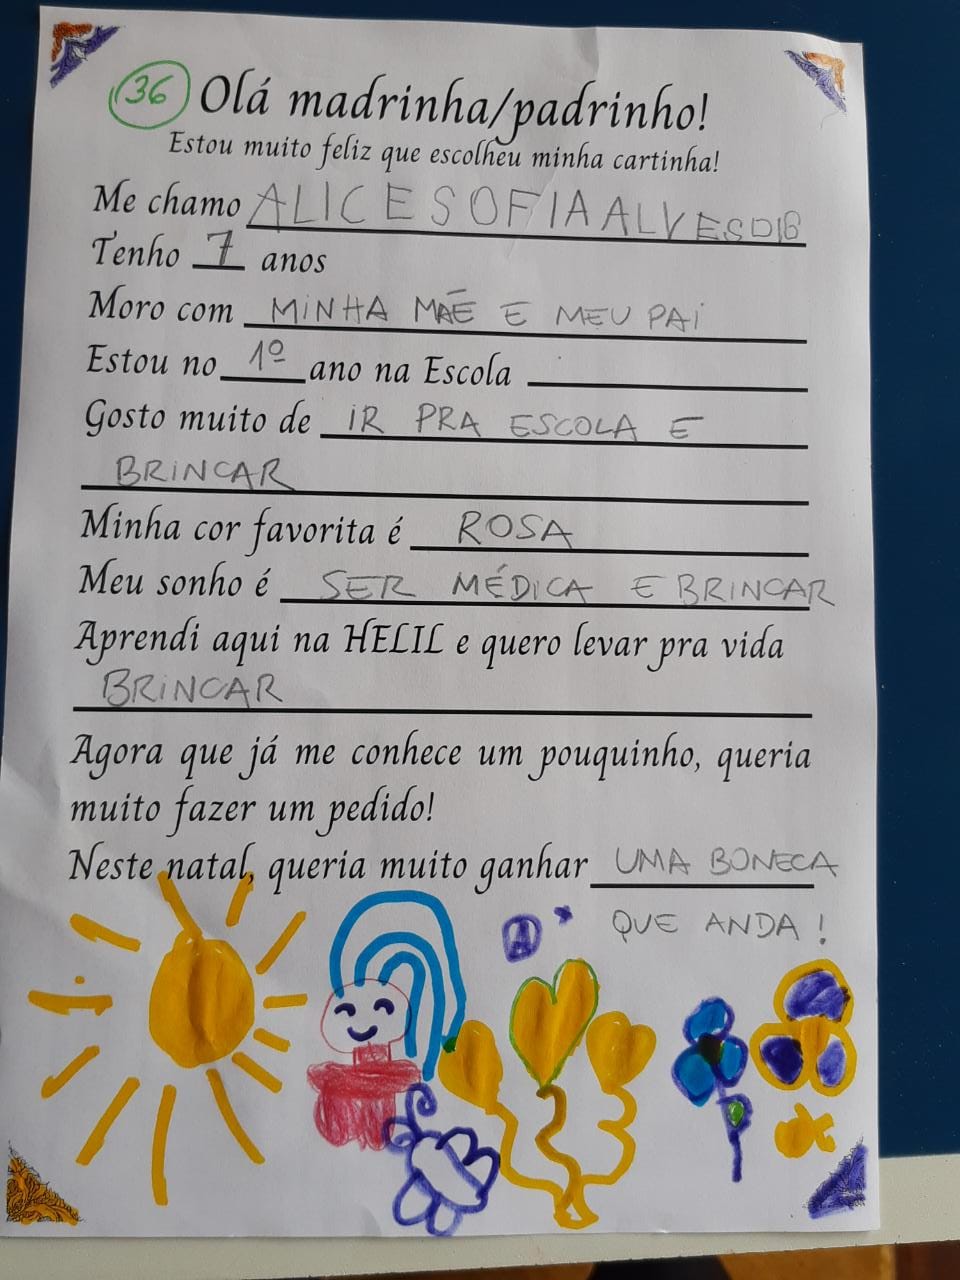 36 Olá madrinha/padrinho!
Estou muito feliz que escolheu minha cartinha!
Me chamo ALICE SOFIA ALVES
Tenho 7 anos
Moro com MINHA MÃE E MEU PAI
Estou no 1º ano na Escola
Gosto muito de IR PRA ESCOLA E
BRINCAR
Minha cor favorita é ROSA
Meu sonho é SER MÉDICA E BRINCAR
Aprendi aqui na HELIL e quero levar pra vida
BRINCAR
Agora que já me conhece um pouquinho, queria
muito fazer um pedido!
Neste natal, queria muito ganhar UMA BONECA
QUE ANDA!